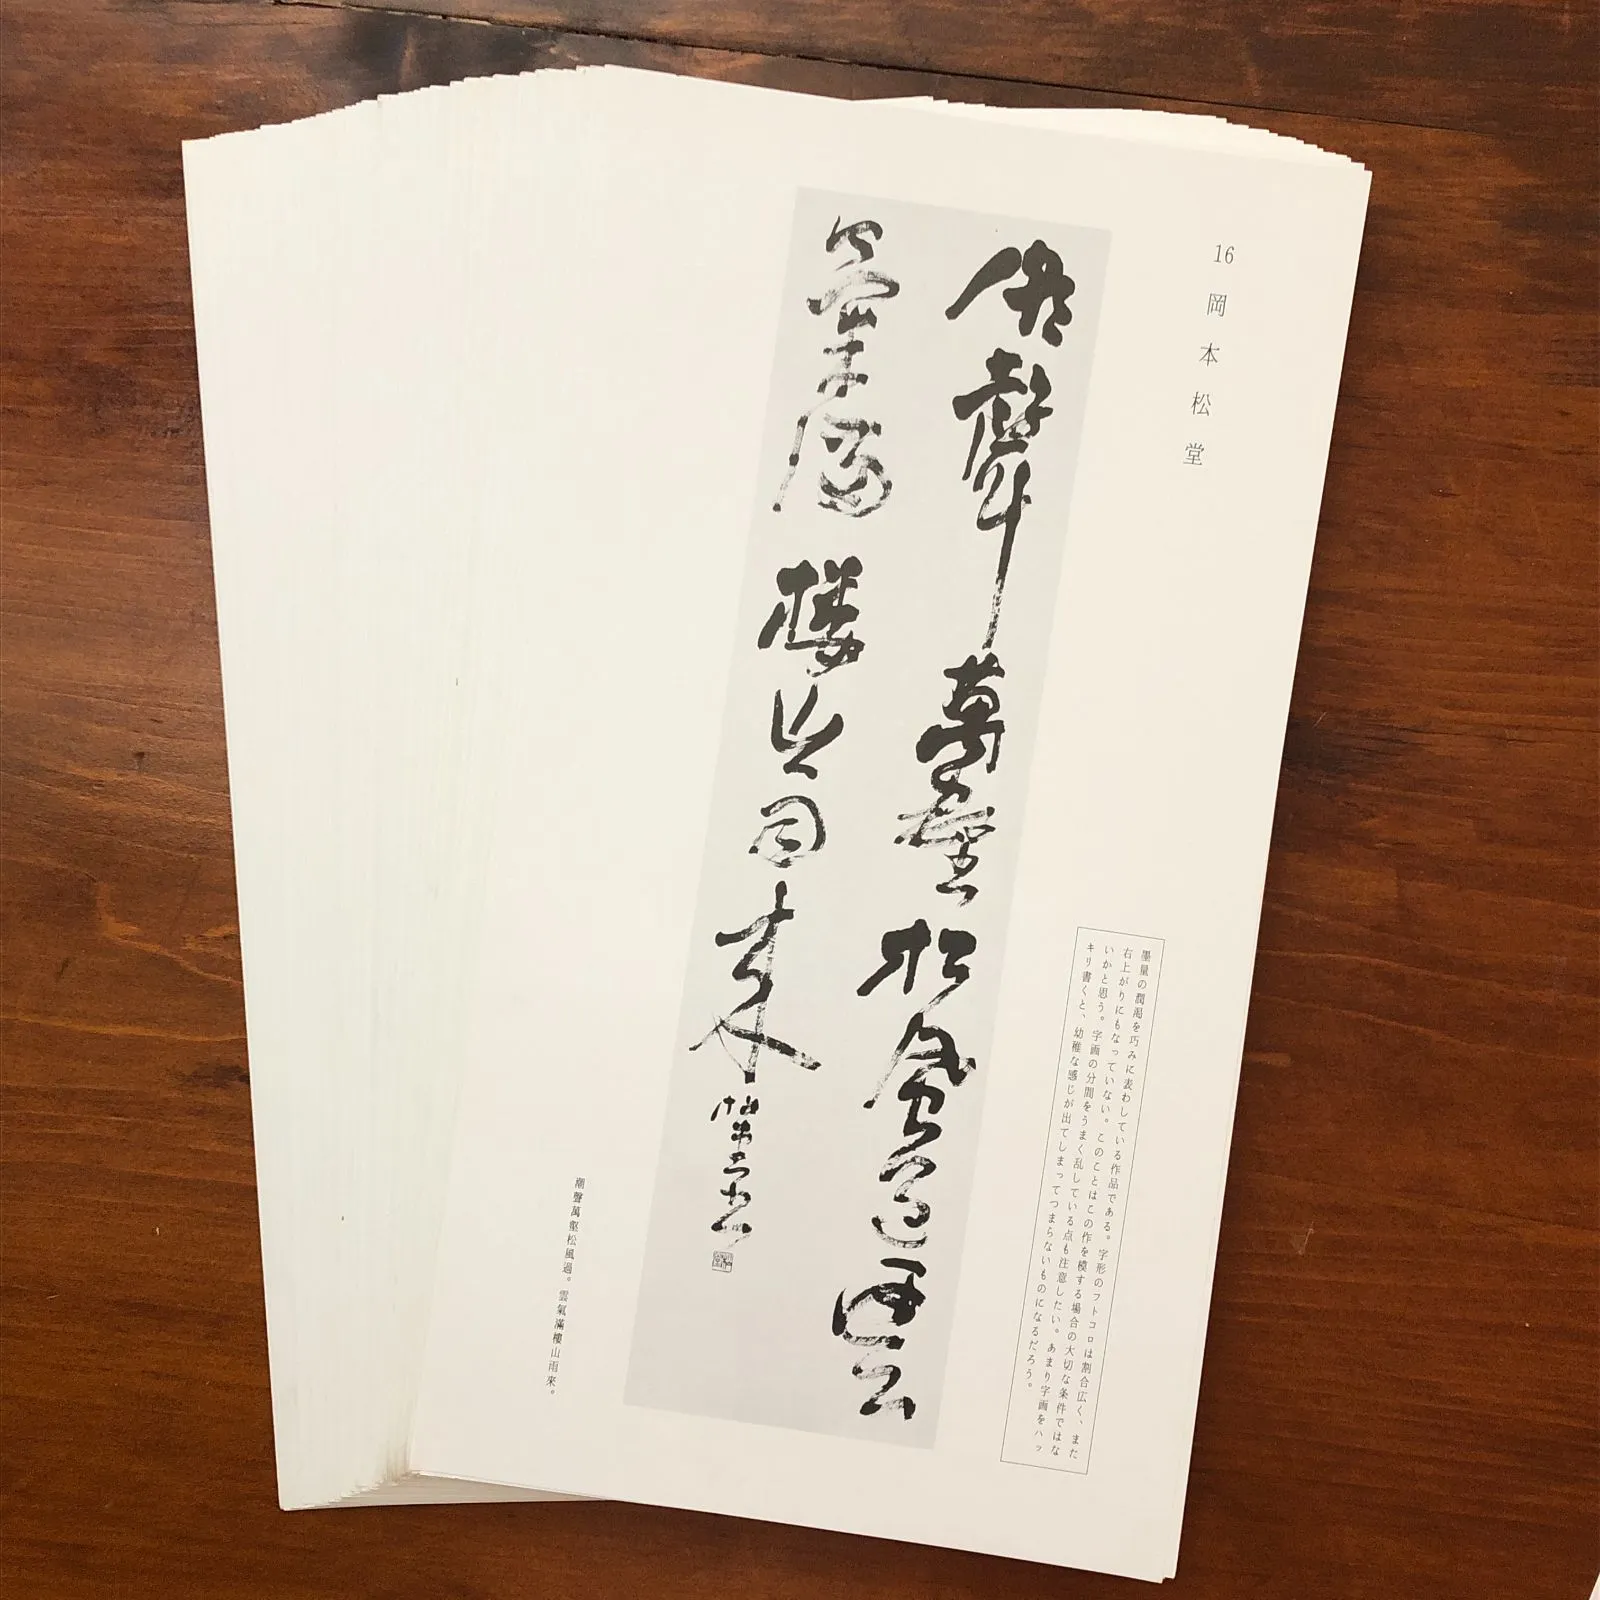 16 岡本松堂
墨量の潤渇を巧みに表わしている作品である。字形のフトコロは割合広く、また
右上がりにもなっていない。このことはこの作を模する場合の大切な条件ではな
いかと思う。字画の分間をうまく乱している点も注意したい。あまり字画をハッ
キリ書くと、幼稚な感じが出てしまってつまらないものになるだろう。
潮聲萬壑松風過雲
氣滿樓山雨來
潮聲萬壑松風過。雲氣滿樓山雨來。